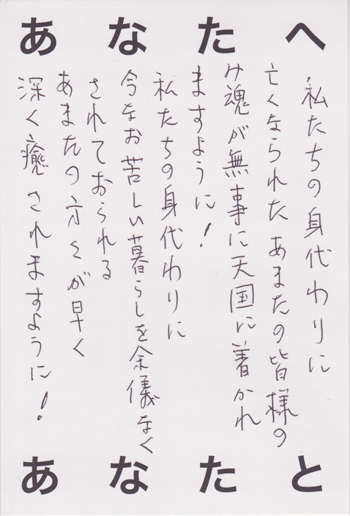 あなたへ
私たちの身代わりに
亡くなられたあまたの皆様の
み魂が無事に天国に着かれ
ますように！
私たちの身代わりに
今なお苦しい暮らしを余儀なく
されておられる
あまたの方々が早く
深く癒されますように！
あなたと